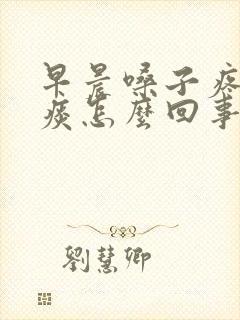 早晨嗓子疼
痰怎麼回事
劉慧卿